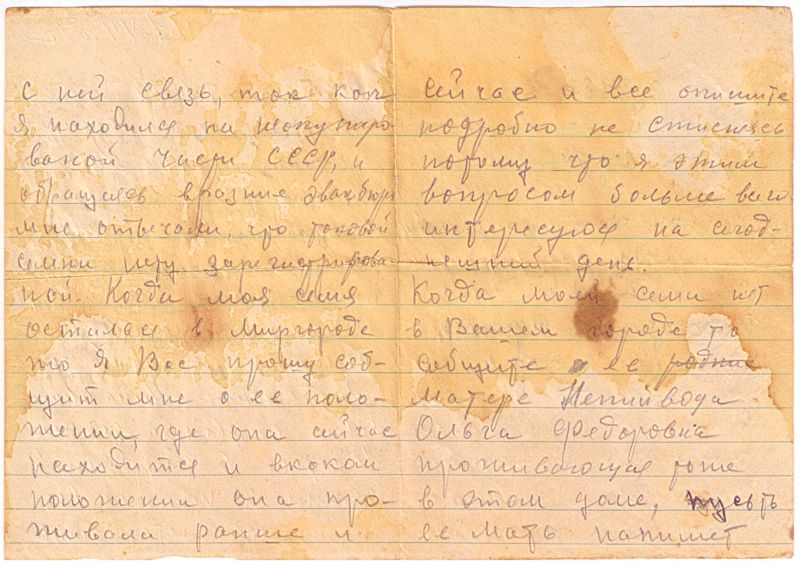 с ней связь, так как
я находился на неокупиро-
вакой части СССР, и
обращаясь в разние эвакбюро
мне отвечали, что таковой
семии нету зарегистрирова-
ной. Когда моя семя
осталься в Миргороде
то я Вас прошу соб-
щит мне о ее поло-
жении, где она сийчас
находится и вкаком
положении она про-
живала ранше и
сейчас и все опишите
подробно не стисняясь
потому что я этим
вопросом больше всего
интересуюся на сегод-
нешний день.
Когда моей семи нет
в Вашем городе то
собщите ее
матере Непийвода
Ольга Федоровна
проживающая тоже
в этом доме, пусьть
ее мать напишет